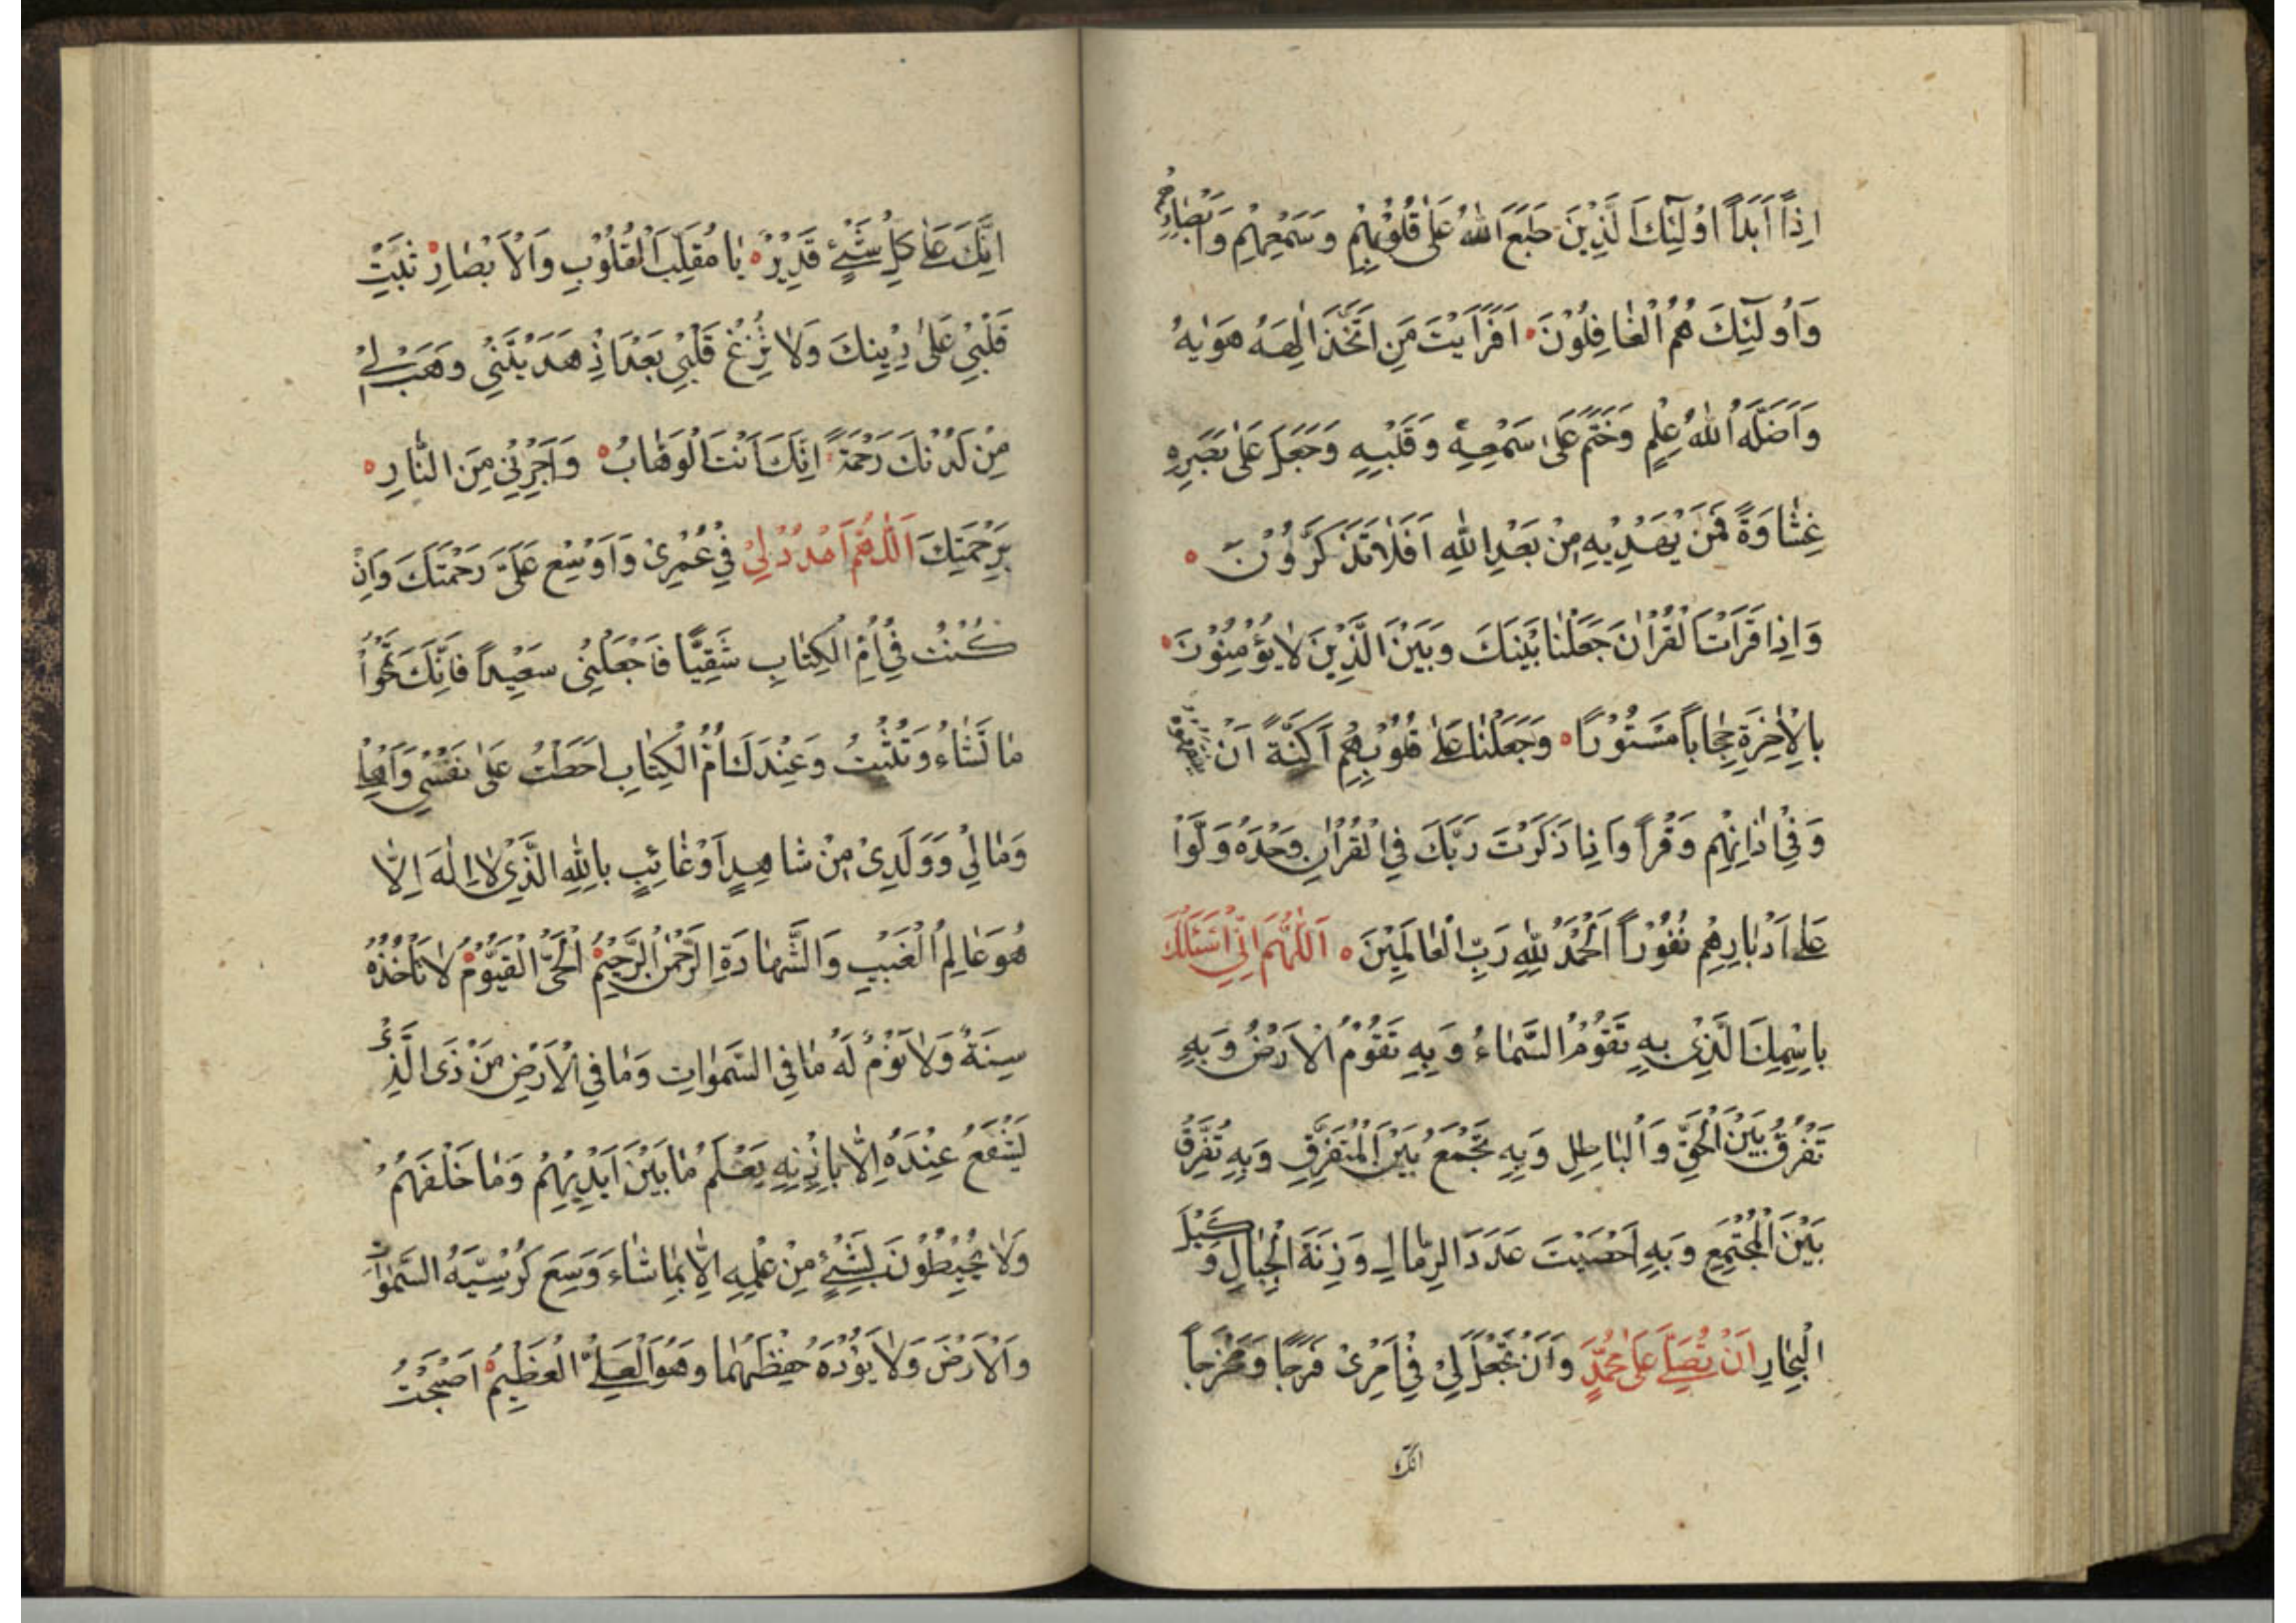 اِذًا اَبَدًا اُولٰٓئِكَ الَّذِيْنَ طَبَعَ اللّٰهُ عَلٰى قُلُوْبِهِمْ وَسَمْعِهِمْ وَاَبْصَارِهِمْ
وَاُولٰٓئِكَ هُمُ الْغَافِلُوْنَ اَفَرَاَيْتَ مَنِ اتَّخَذَ اِلٰهَهُ هَوٰيهُ
وَاَضَلَّهُ اللّٰهُ عِلْمٍ وَخَتَمَ عَلٰى سَمْعِهِ وَقَلْبِهِ وَجَعَلَ عَلٰى بَصَرِهِ
غِشَاوَةً فَمَنْ يَهْدِيْهِ مِنْ بَعْدِ اللّٰهِ اَفَلَا تَذَكَّرُوْنَ
وَاِذَا قَرَاْتَ الْقُرْاٰنَ جَعَلْنَا بَيْنَكَ وَبَيْنَ الَّذِيْنَ لَا يُؤْمِنُوْنَ
بِالْاٰخِرَةِ حِجَابًا مَسْتُوْرًا وَجَعَلْنَا عَلٰى قُلُوْبِهِمْ اَكِنَّةً اَنْ يَفْقَهُوْهُ
وَفِيْ اٰذَانِهِمْ وَقْرًا وَاِذَا ذَكَرْتَ رَبَّكَ فِي الْقُرْاٰنِ وَحْدَهُ وَلَّوْا
عَلٰى اَدْبَارِهِمْ نُفُوْرًا اَلْحَمْدُ لِلّٰهِ رَبِّ الْعَالَمِيْنَ اَللّٰهُمَّ اِنِّيْ اَسْئَلُكَ
بِاسْمِكَ الَّذِيْ بِهِ تَقُوْمُ السَّمَاءُ وَبِهِ تَقُوْمُ الْاَرْضُ وَبِهِ
تَفْرُقُ بَيْنَ الْحَقِّ وَالْبَاطِلِ وَبِهِ تَجْمَعُ بَيْنَ الْمُتَفَرِّقِ وَبِهِ تُفَرِّقُ
بَيْنَ الْمُجْتَمِعِ وَبِهِ اَحْصَيْتَ عَدَدَ الرِّمَالِ وَزِنَةَ الْجِبَالِ وَكَيْلَ
الْبِحَارِ اَنْ تُصَلِّيَ عَلٰى مُحَمَّدٍ وَاَنْ تَجْعَلَ لِيْ فِيْ اَمْرِيْ فَرَجًا وَمَخْرَجًا
انك
اِنَّكَ عَلٰى كُلِّ شَيْءٍ قَدِيْرٌ يَا مُقَلِّبَ الْقُلُوْبِ وَالْاَبْصَارِ ثَبِّتْ
قَلْبِيْ عَلٰى دِيْنِكَ وَلَا تُزِغْ قَلْبِيْ بَعْدَ اِذْ هَدَيْتَنِيْ وَهَبْ لِيْ
مِنْ لَدُنْكَ رَحْمَةً اِنَّكَ اَنْتَ الْوَهَّابُ وَاَجِرْنِيْ مِنَ النَّارِ
بِرَحْمَتِكَ اَللّٰهُمَّ امْدُدْ لِيْ فِيْ عُمْرِيْ وَاَوْسِعْ عَلَيَّ رَحْمَتَكَ وَاِنْ
كُنْتُ فِيْ اُمِّ الْكِتَابِ شَقِيًّا فَاجْعَلْنِيْ سَعِيْدًا فَاِنَّكَ تَمْحُوْا
مَا تَشَاءُ وَتُثْبِتُ وَعِنْدَكَ اُمُّ الْكِتَابِ اَحَطْتُ عَلٰى نَفْسِيْ وَاَهْلِيْ
وَمَالِيْ وَوَلَدِيْ مِنْ شَاهِدٍ اَوْ غَائِبٍ بِاللّٰهِ الَّذِيْ لَا اِلٰهَ اِلَّا
هُوَ عَالِمُ الْغَيْبِ وَالشَّهَادَةِ الرَّحْمٰنُ الرَّحِيْمُ الْحَيُّ الْقَيُّوْمُ لَا تَاْخُذُهُ
سِنَةٌ وَلَا نَوْمٌ لَهُ مَا فِي السَّمٰوَاتِ وَمَا فِي الْاَرْضِ مَنْ ذَا الَّذِيْ
يَشْفَعُ عِنْدَهُ اِلَّا بِاِذْنِهِ يَعْلَمُ مَا بَيْنَ اَيْدِيْهِمْ وَمَا خَلْفَهُمْ
وَلَا يُحِيْطُوْنَ بِشَيْءٍ مِنْ عِلْمِهِ اِلَّا بِمَا شَاءَ وَسِعَ كُرْسِيُّهُ السَّمٰوَاتِ
وَالْاَرْضَ وَلَا يَؤُدُهُ حِفْظُهُمَا وَهُوَ الْعَلِيُّ الْعَظِيْمُ اَصْبَحْتُ